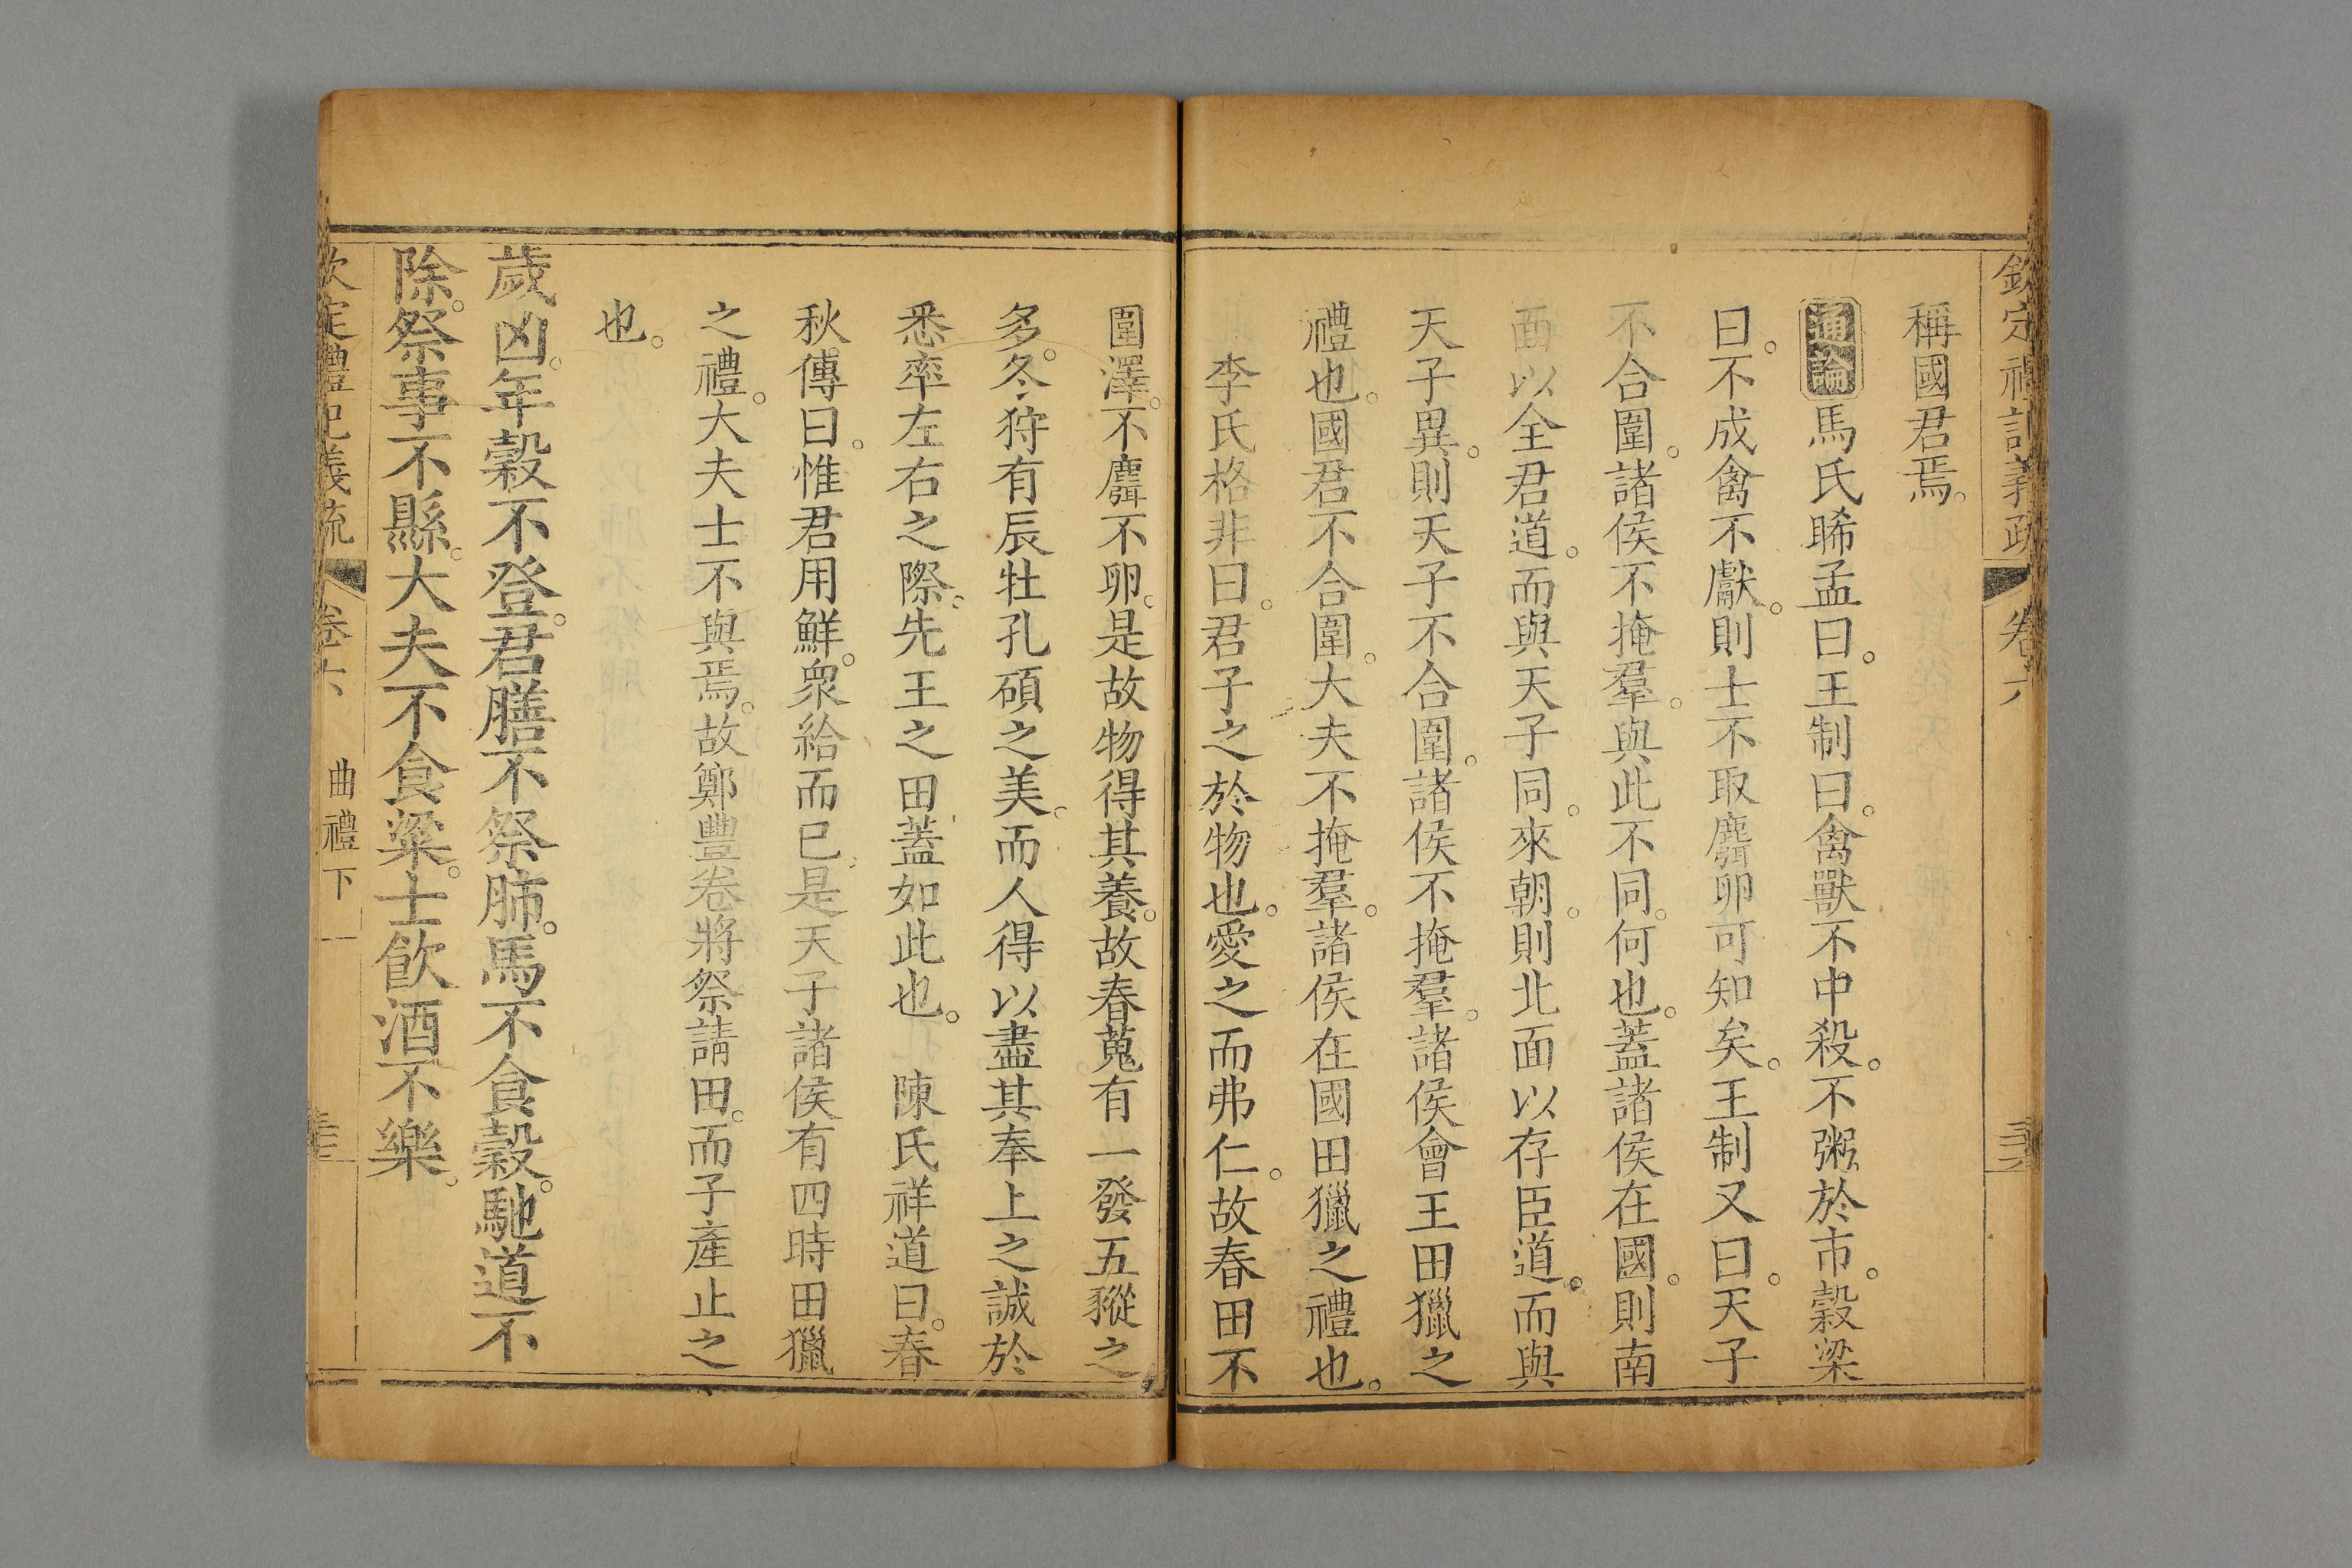 欽定禮記義疏 卷六
稱國君焉。
通論馬氏晞孟曰。王制曰。禽獸不中殺。不粥於市。穀梁
曰。不成禽不獻。則士不取麛卵可知矣。王制又曰。天子
不合圍。諸侯不掩羣。與此不同。何也。蓋諸侯在國。則南
面以全君道。而與天子同。來朝。則北面以存臣道。而與
天子異。則天子不合圍。諸侯不掩羣。諸侯會王田獵之
禮也。國君不合圍。大夫不掩羣。諸侯在國田獵之禮也。
李氏格非曰。君子之於物也。愛之而弗仁。故春田不
圍澤。不麛不卵。是故物得其養。故春蒐有一發五豵之
多。冬狩有辰牡孔碩之美。而人得以盡其奉上之誠於
悉率左右之際。先王之田蓋如此也。 陳氏祥道曰。春
秋傳曰。惟君用鮮。衆給而已。是天子諸侯有四時田獵
之禮。大夫士不與焉。故鄭豐卷將祭請田。而子產止之
也。
歲凶。年穀不登。君膳不祭肺。馬不食穀。馳道不
除。祭事不縣。大夫不食粱。士飲酒不樂。
欽定禮記義疏 卷六 曲禮下